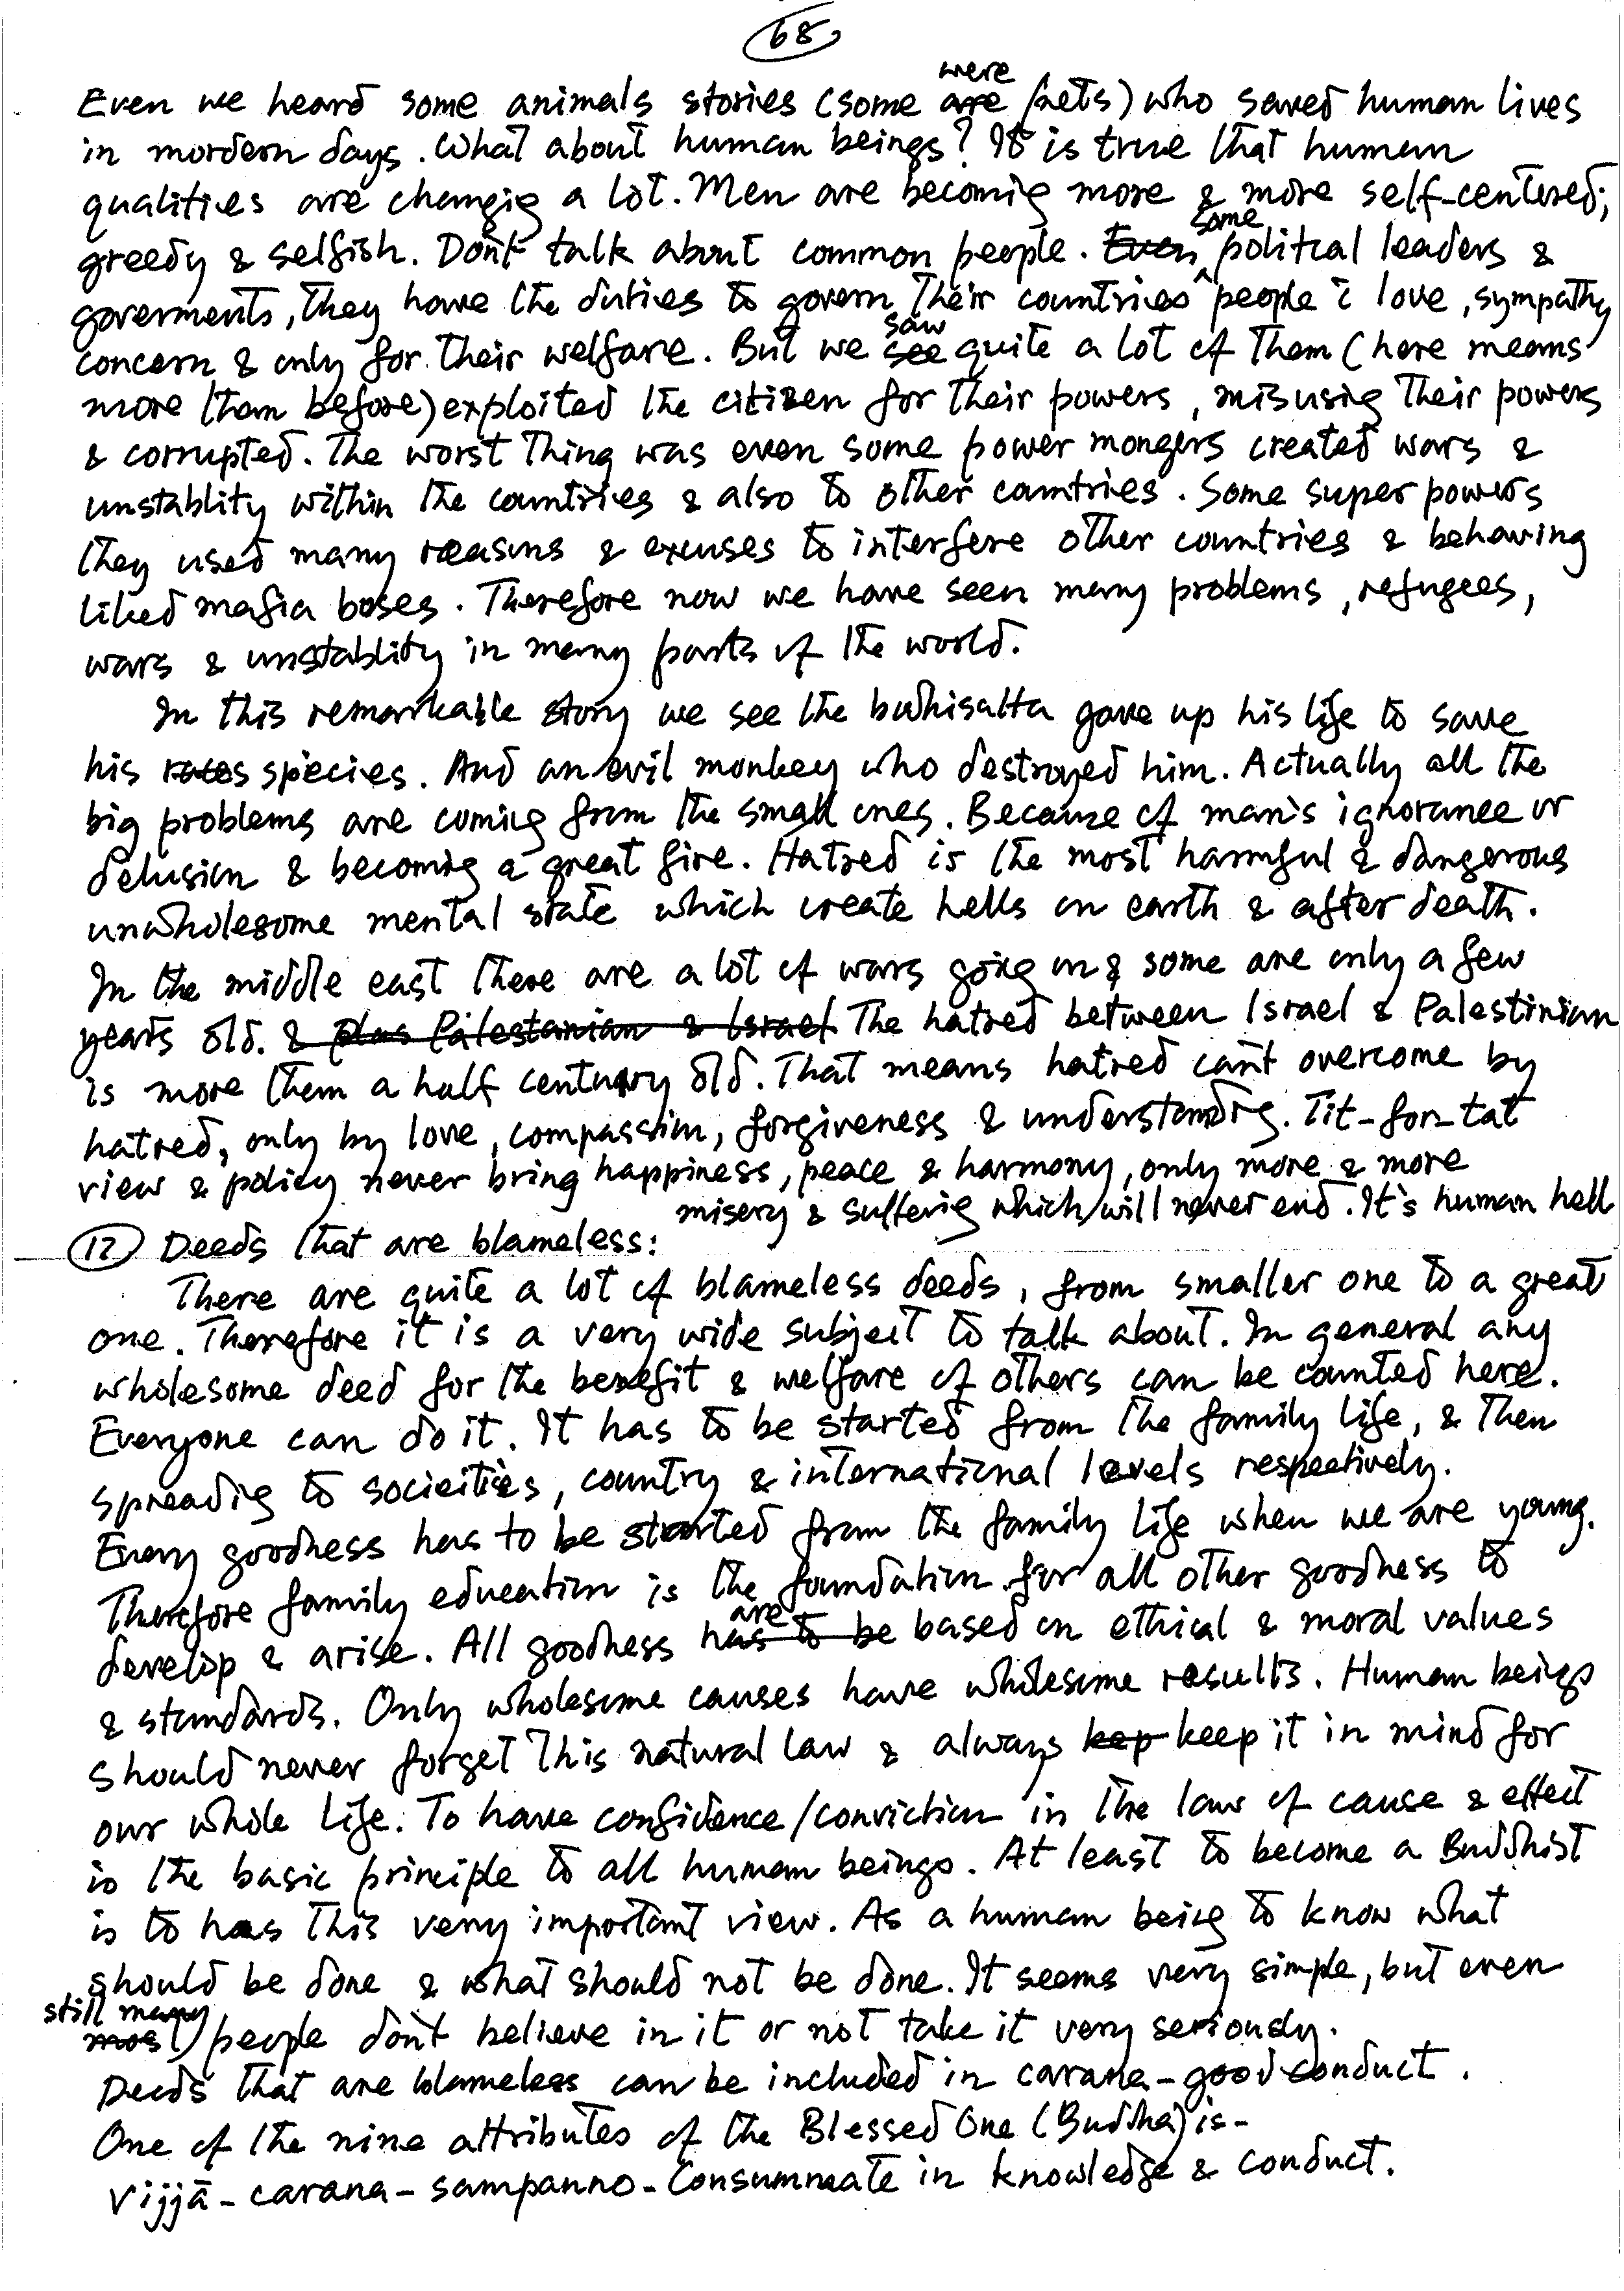 68
Even we heard some animals stories (some were pets) who saved human lives
in mordern days. What about human beings? It is true that human
qualities are changig a lot. Men are becomig more & more self-centered;
greedy & selfish. Don't talk about common people. Even some political leaders &
goverments, they have the duties to govern their countries people c̄ love, sympathy
concern & only for their welfare. But we saw quite a lot of them (here means
more than before) exploited the citizen for their powers, misusig their powers
& corrupted. The worst thing was even some power mongers created wars &
unstablity within the countries & also to other countries. Some super powers
they used many reasons & excuses to interfere other countries & behaving
liked mafia boses. Therefore now we have seen many problems, refugees,
wars & unstablity in many parts of the world.
In this remarkable story we see the bodhisatta gave up his life to save
his species. And an evil monkey who destroyed him. Actually all the
big problems are comig from the small ones. Because of man's ignorance or
delusion & becomig a great fire. Hatred is the most harmful & dangerous
unwholesome mental state which create hells on earth & after death.
In the middle east there are a lot of wars goig on & some are only a few
years old. & plus Palestanian & Israel The hatred between Israel & Palestinian
is more than a half century old. That means hatred can't overcome by
hatred, only by love, compassion, forgiveness & understandig. Tit-for-tat
view & policy never bring happiness, peace & harmony, only more & more
misery & sufferig which will never end. It's human hell
12 Deeds that are blameless:
There are quite a lot of blameless deeds, from smaller one to a great
one. Therefore it is a very wide subject to talk about. In general any
wholesome deed for the benefit & welfare of others can be counted here.
Everyone can do it. It has to be started from the family life, & then
spreadig to socieities, country & international levels respectively.
Every goodness has to be started from the family life when we are young.
Therefore family education is the foundation for all other goodness to
develop & arise. All goodness are has to be based on ethical & moral values
& standards. Only wholesome causes have wholesome results. Human beings
should never forget this natural law & always kep keep it in mind for
our whole life. To have confidence/conviction in the law of cause & effect
is the basic principle to all human beings. At least to become a Buddhist
is to has this very important view. As a human beig to know what
should be done & what should not be done. It seems very simple, but even
still many most people don't believe in it or not take it very seriously.
Deeds that are blameless can be included in carana-good conduct.
One of the nine attributes of the Blessed One (Buddha) is-
vijjā-carana-sampanno-Consummate in knowledge & conduct.